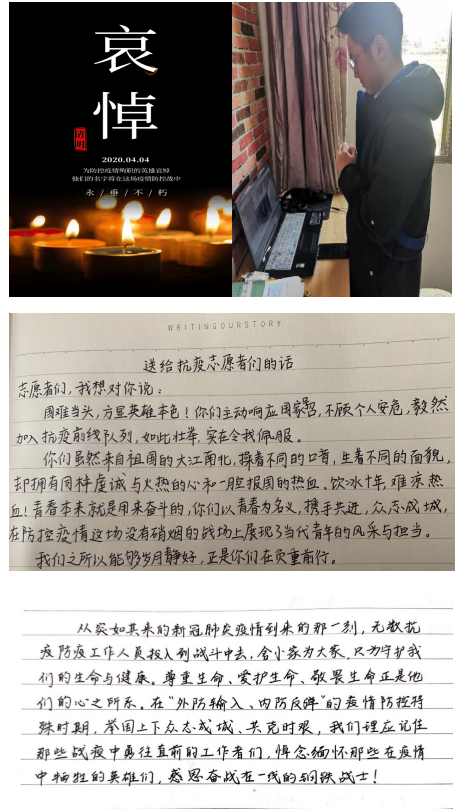 哀
悼
清明
2020.04.04
为防控疫情殉职的英雄哀悼
他们的名字将在这场疫情防控战中
永/垂/不/朽
WRITINGOURSTORY
送给抗疫志愿者们的话
志愿者们，我想对你说：
国难当头，方里英雄本色！你们主动响应国家号召，不顾个人安危，毅然
加入抗疫前线队列，如此壮举，实在令我佩服。
你们虽然来自祖国的大江南北，操着不同的口音，生着不同的面貌，
却拥有同样虔诚与火热的心和一腔报国的热血。饮冰十年，难凉热
血！青春本来就是用来奋斗的，你们以青春为名义，携手共进，众志成城，
在防控疫情这场没有硝烟的战场上展现了当代青年的风采与担当。
我们之所以能够岁月静好，正是你们在负重前行。
从突如其来的新冠肺炎疫情到来的那一刻，无数抗
疫防疫工作人员投入到战斗中去，舍小家为大家，只为守护我
们的生命与健康。尊重生命、爱护生命、敬畏生命正是他
们的心之所系。在“外防输入、内防反弹”的疫情防控特
殊时期，举国上下众志成城、共克时艰，我们理应记住
那些战疫中勇往直前的工作者们，悼念缅怀那些在疫情
中牺牲的英雄们，感恩奋战在一线的钢铁战士！